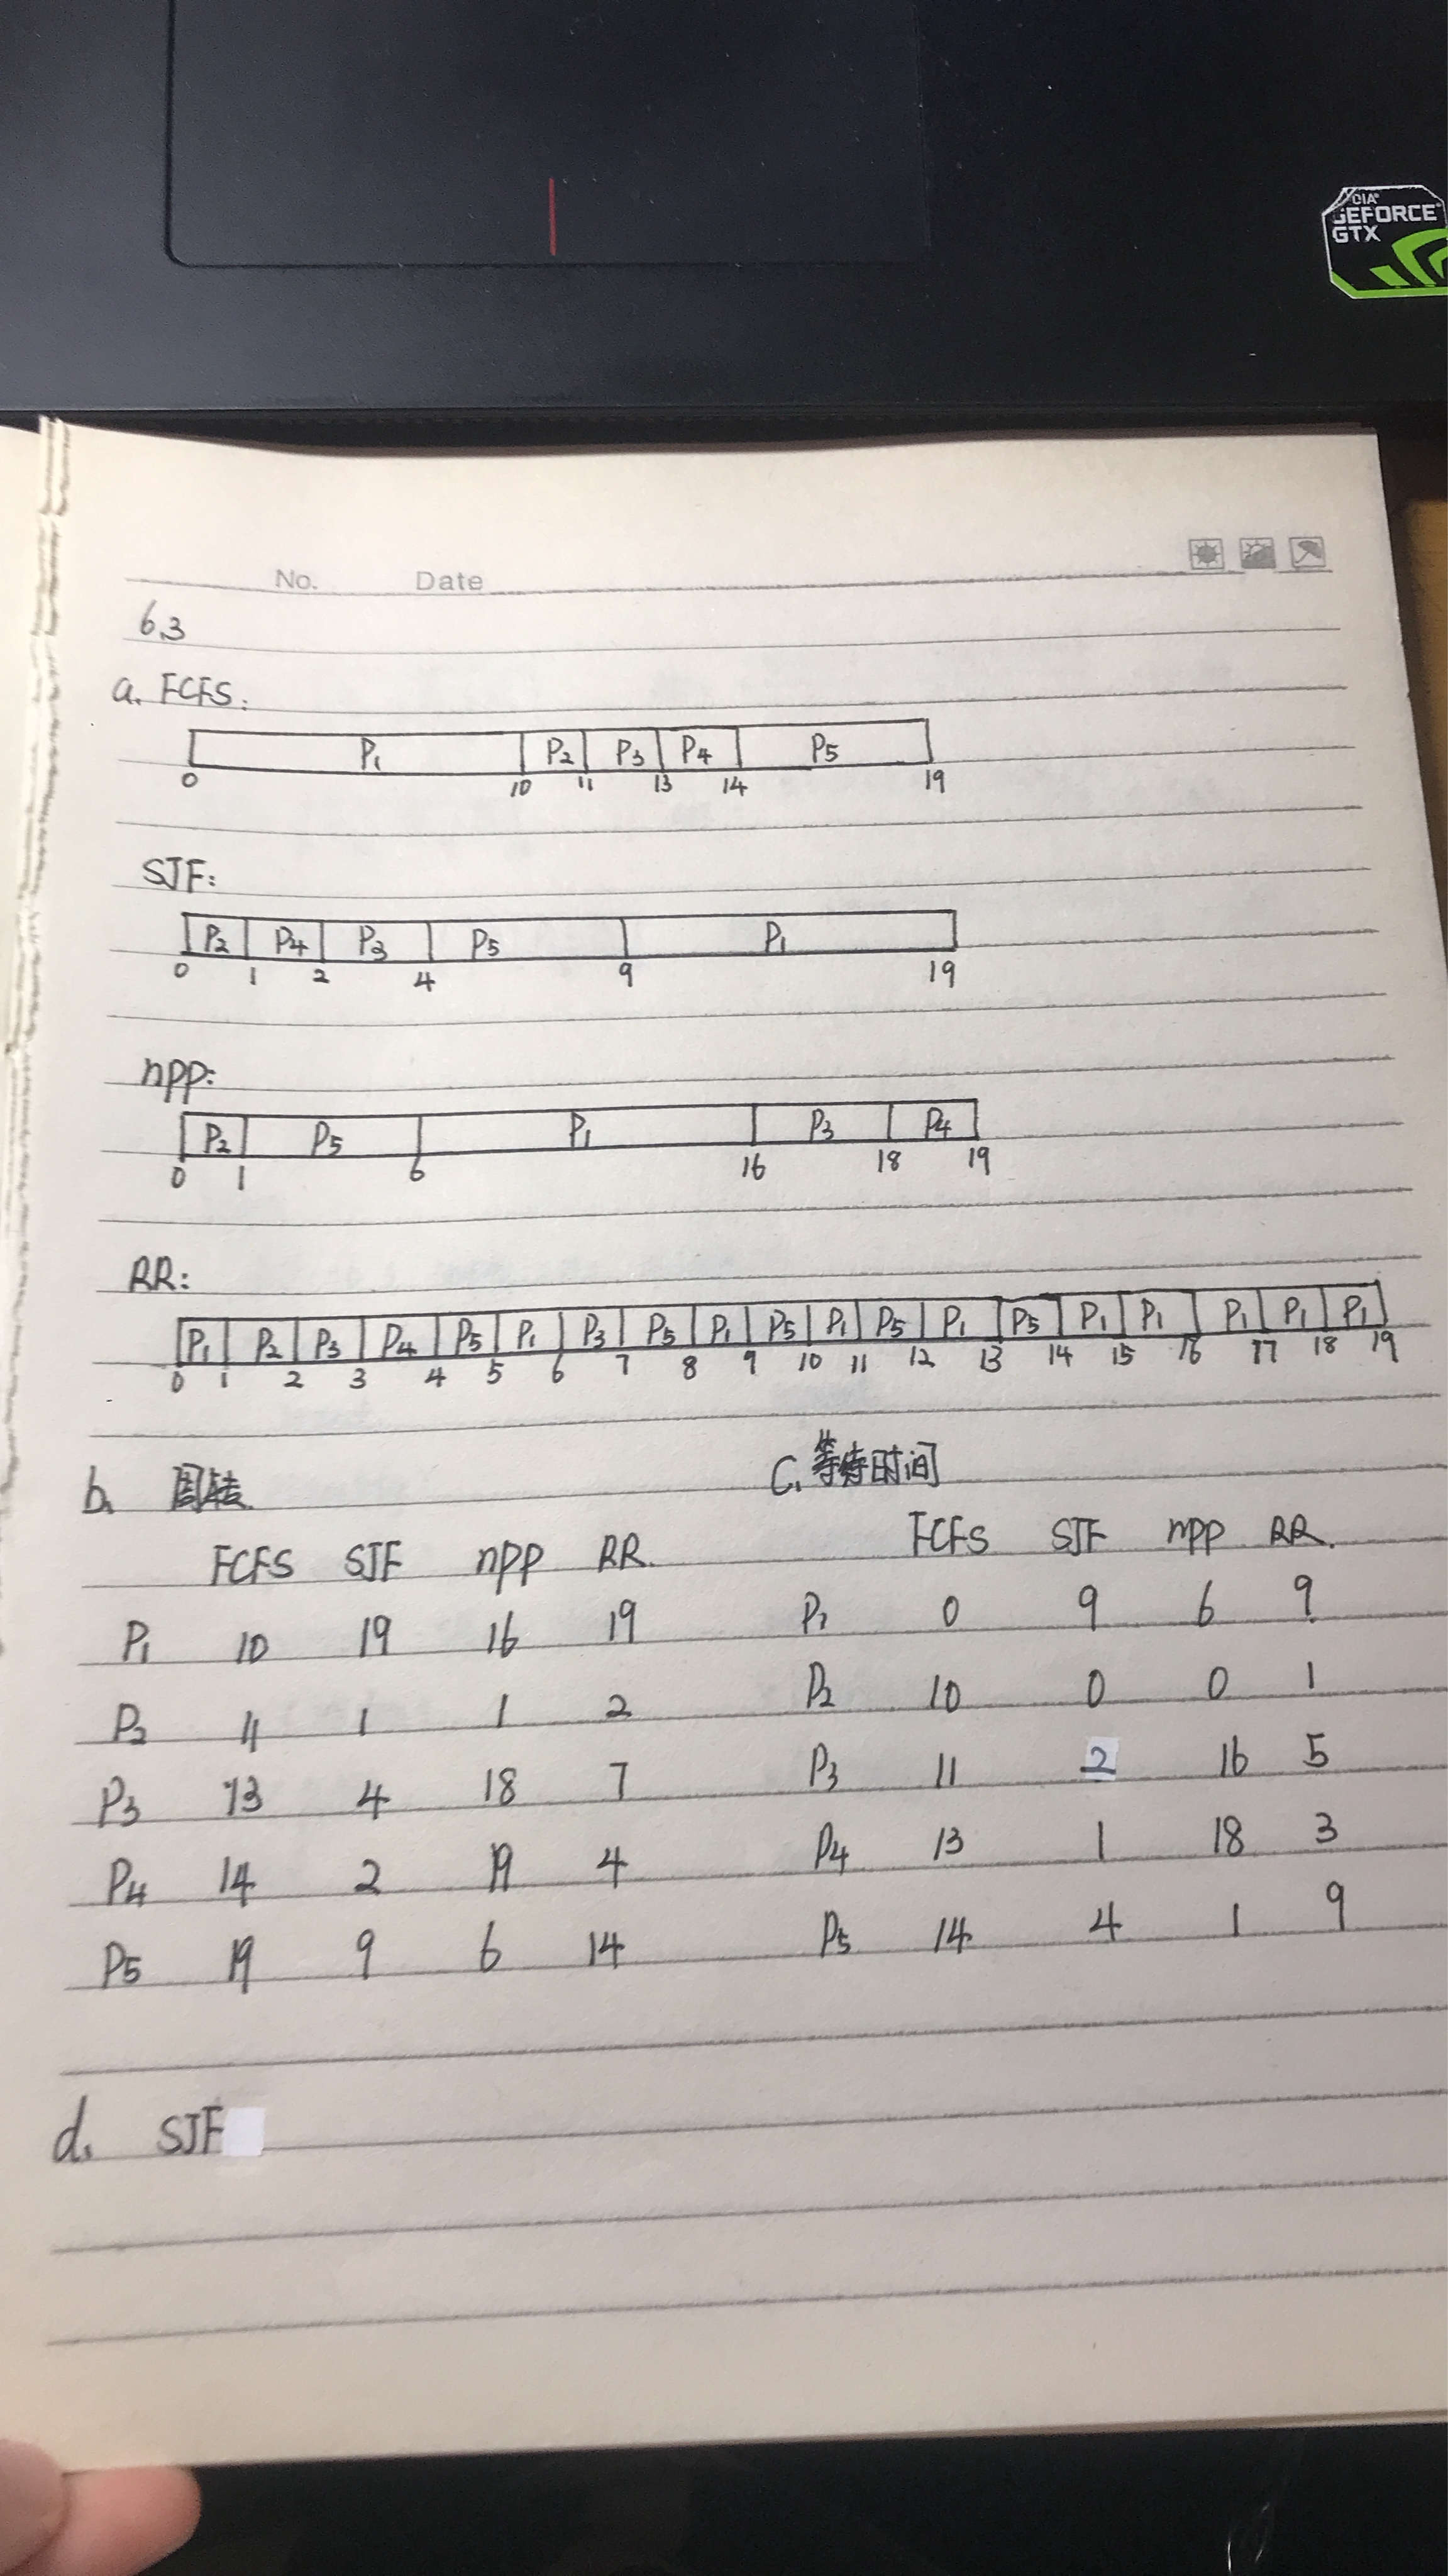 GEFORCE
GTX
No. Date
6.3
a. FCFS:
P1 P2 P3 P4 P5
0 10 11 13 14 19
SJF:
P2 P4 P3 P5 P1
0 1 2 4 9 19
npp:
P2 P5 P1 P3 P4
0 1 6 16 18 19
RR:
P1 P2 P3 P4 P5 P1 P3 P5 P1 P5 P1 P5 P1 P5 P1 P1 P1 P1 P1
0 1 2 3 4 5 6 7 8 9 10 11 12 13 14 15 16 17 18 19
b. 周转
FCFS SJF npp RR.
P1 10 19 16 19
P2 11 1 1 2
P3 13 4 18 7
P4 14 2 19 4
P5 19 9 6 14
C. 等待时间
FCFS SJF npp RR.
P1 0 9 6 9
P2 10 0 0 1
P3 11 2 16 5
P4 13 1 18 3
P5 14 4 1 9
d. SJF